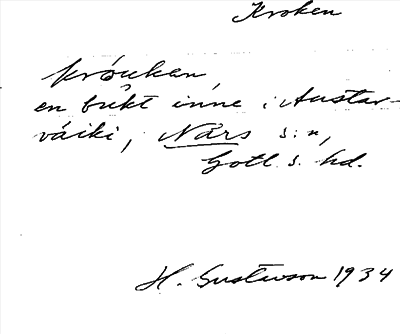 Kroken
kröukan,
en bukt inne i Austar-
väiki, När s:n,
Gotl. s. hd.
H. Gustavson 1934